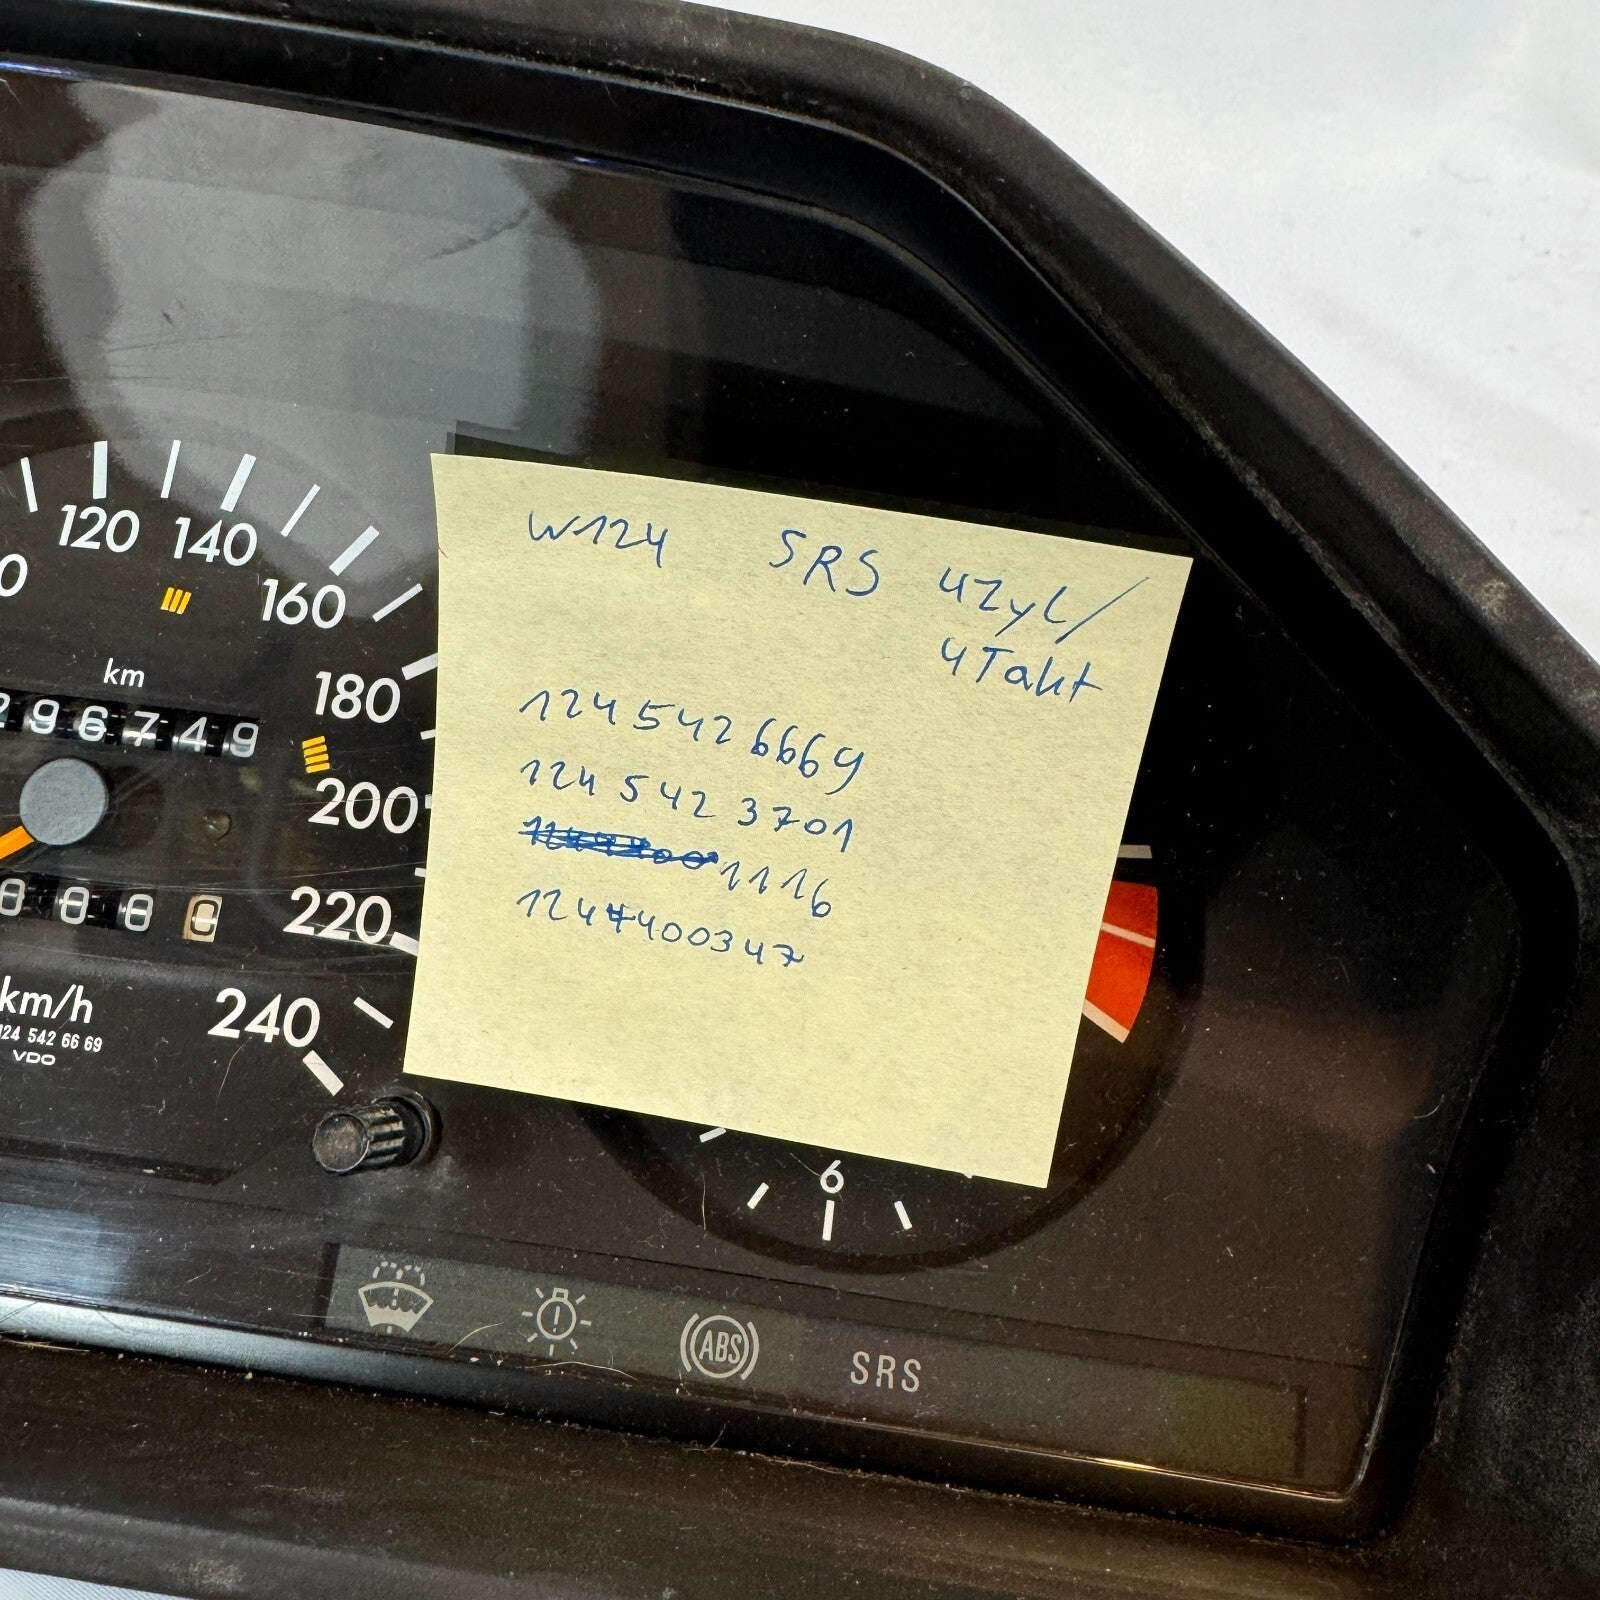 120 140
0 160
km
180
296749
200
000 0
220
km/h
240
124 542 66 69
VDO
W124 SRS 4Zyl/
4Takt
124 542 6669
124 542 3701
1116
1244400347
6
ABS
SRS